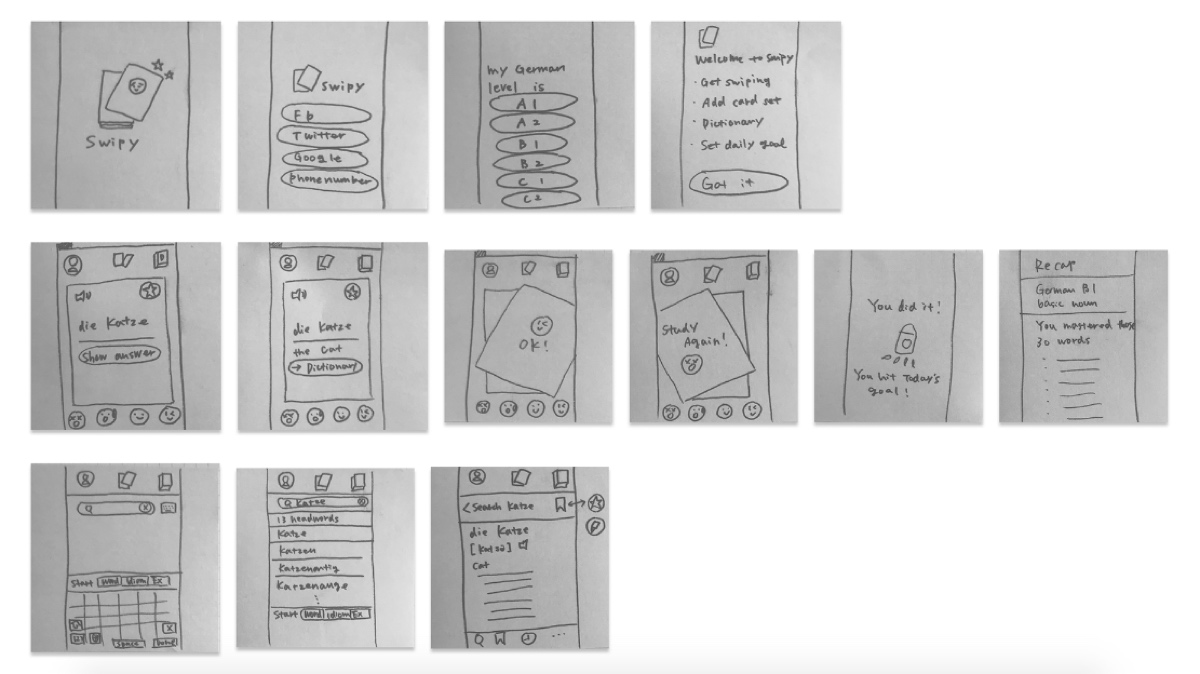 Swipy
Swipy
Fb
Twitter
Google
phonenumber
my German
level is
A1
A2
B1
B2
C1
C2
Welcome to Swipy
· Get swiping
· Add card set
· Dictionary
· Set daily goal
Got it
die Katze
Show answer
die Katze
the cat
→ Dictionary
OK!
Study
Again!
You did it!
You hit Today's
goal!
Recap
German B1
basic noun
You mastered those
30 words
Start Word Idiom Ex
Space
Q Katze
13 headwords
Katze
Katzen
Katzenartig
Katzenauge
Start Word idiom Ex
< Search Katze
die Katze
cat